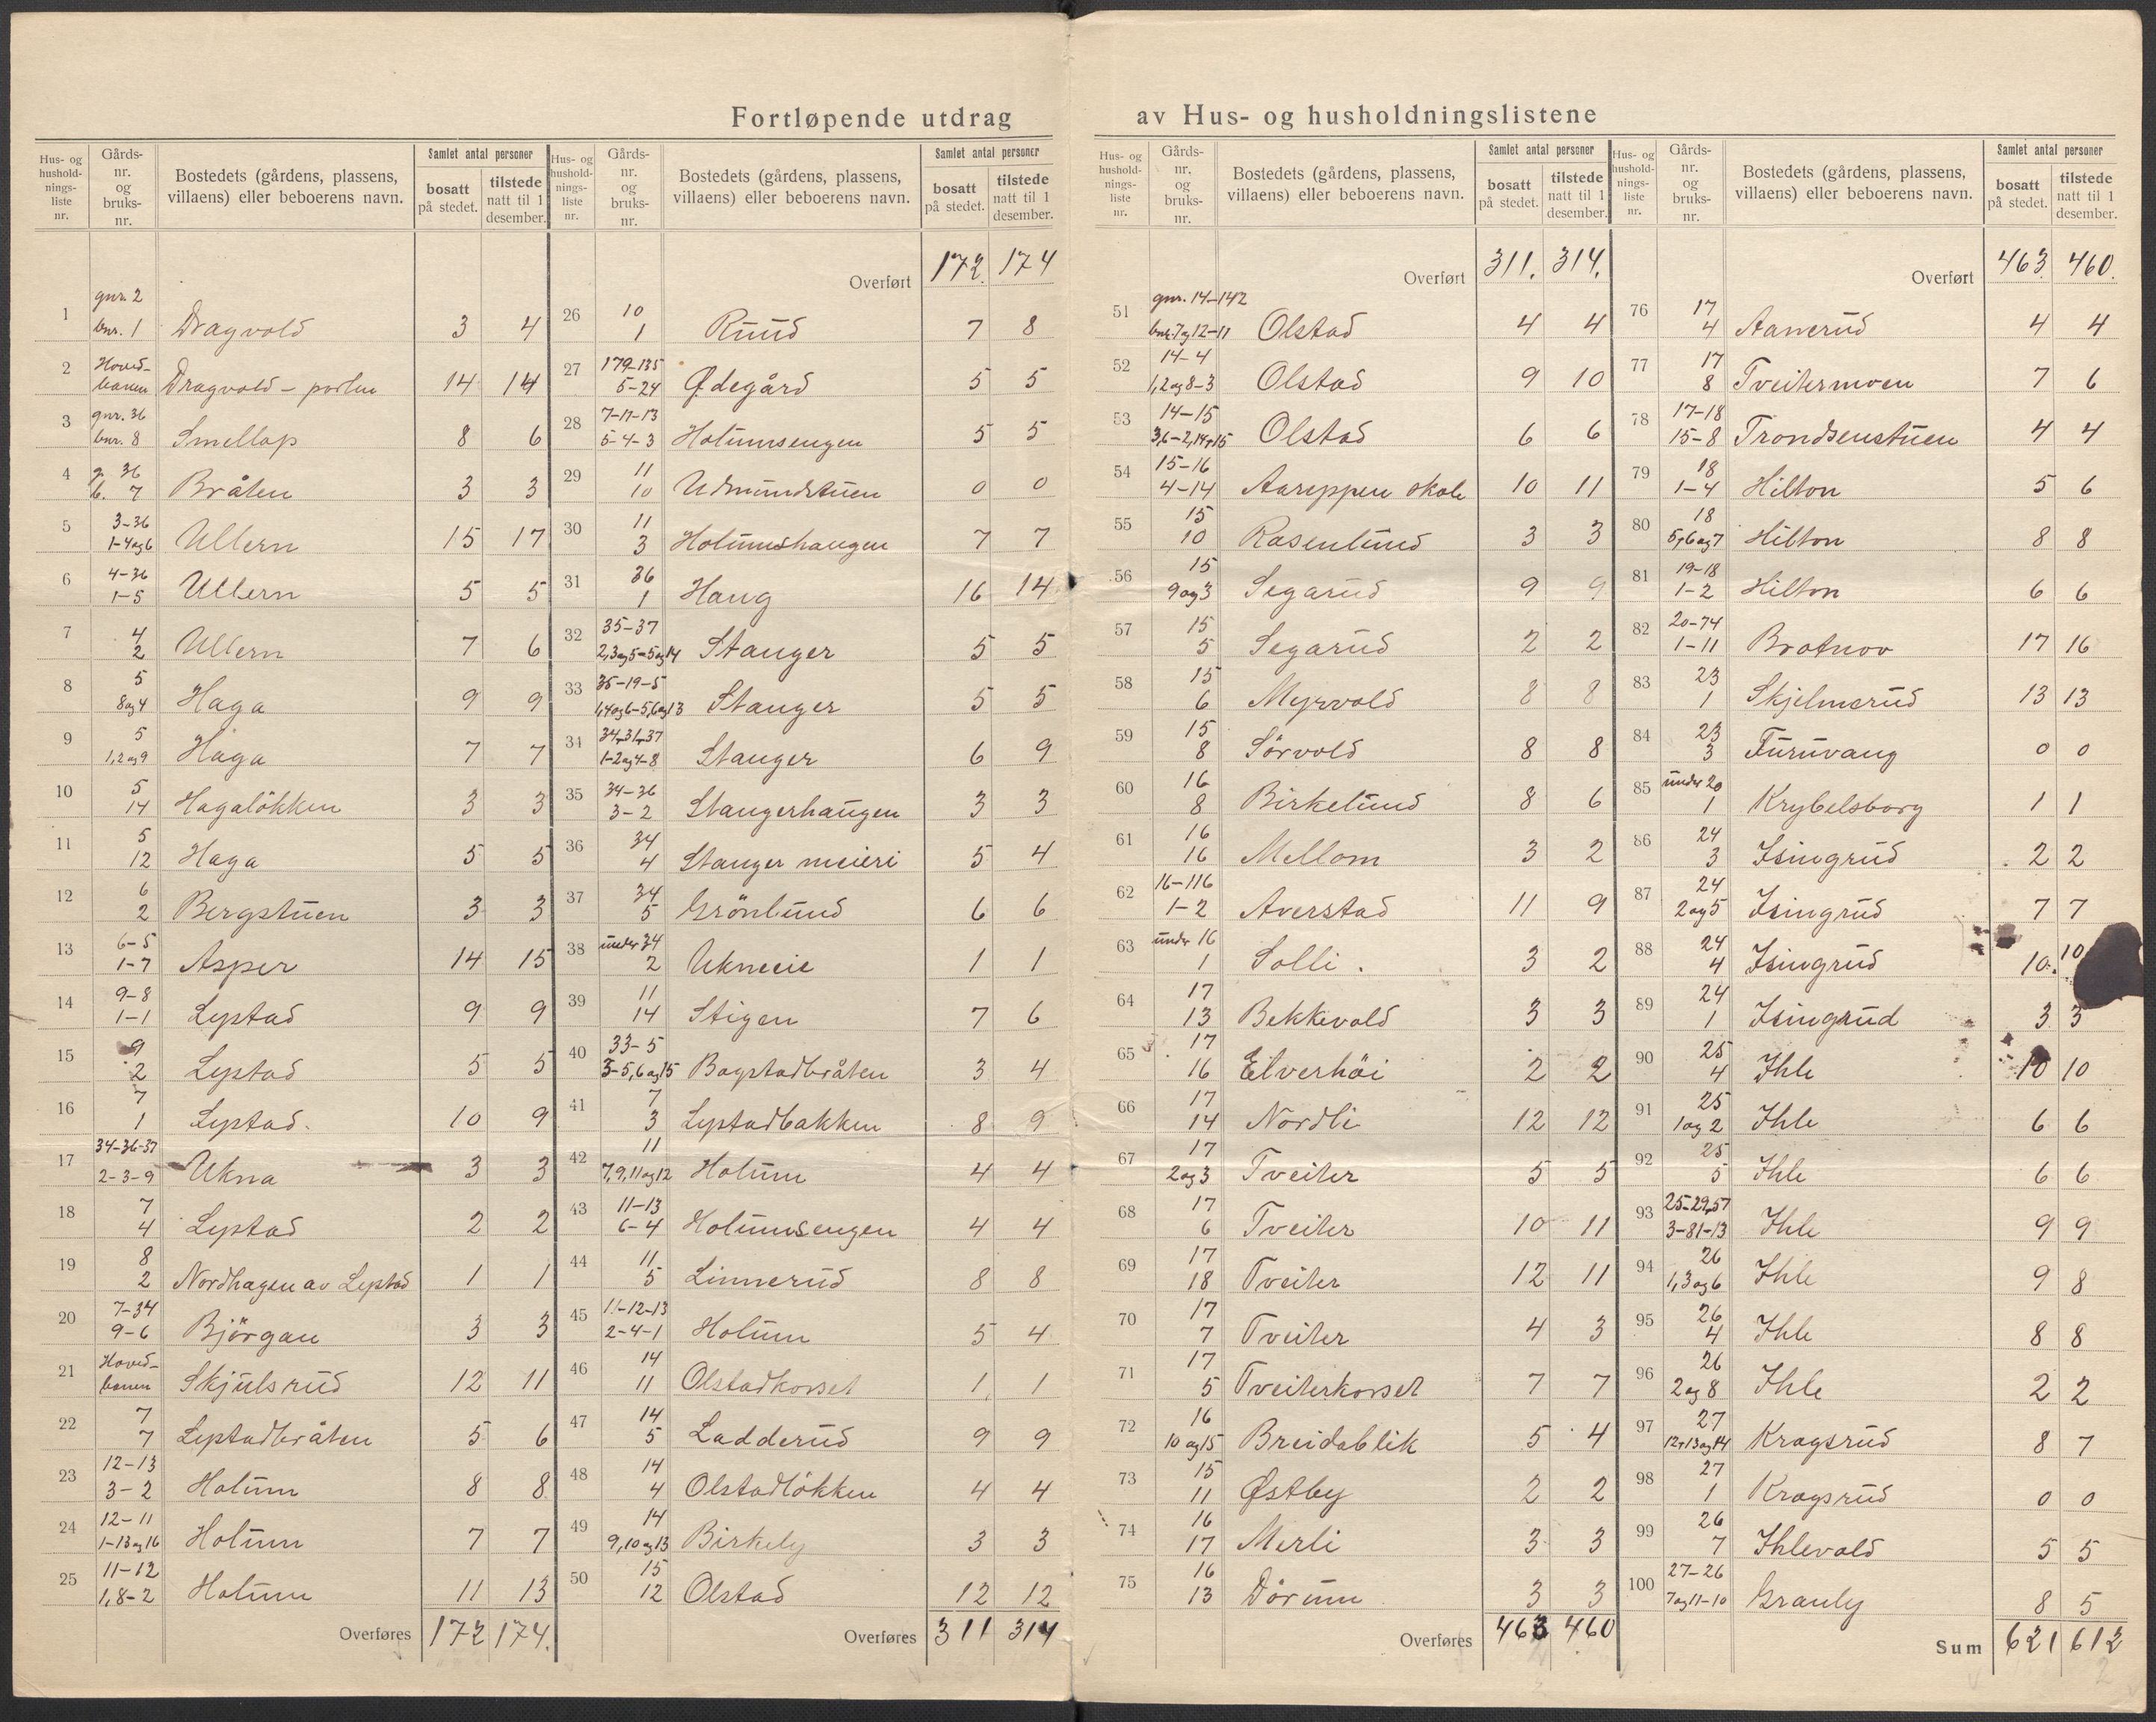 Fortløpende utdrag av Hus- og husholdningslistene
Hus- og husholdningsliste nr. | Gårds-nr. og bruks-nr. | Bostedets (gårdens, plassens, villaens) eller beboerens navn. | Samlet antal personer | bosatt på stedet. | tilstede natt til 1 desember.
1 gnr. 2 bnr. 1 Dragvold 3 4
2 Hoved-banen Dragvold - porten 14 14
3 gnr. 36 bnr. 8 Smellop 8 6
4 g. 36 b. 7 Bråten 3 3
5 3-36 1-4og6 Ullern 15 17
6 4-36 1-5 Ullern 5 5
7 4 2 Ullern 7 6
8 5 8og4 Haga 9 9
9 5 1,2og9 Haga 7 7
10 5 14 Hagaløkken 3 3
11 5 12 Haga 5 5
12 6 2 Bergstuen 3 3
13 6-5 1-7 Asper 14 15
14 9-8 1-1 Leptad 9 9
15 9 2 Leptad 5 5
16 7 1 Leptad 10 9
17 34-36-37 2-3-9 Ukna 3 3
18 7 4 Leptad 2 2
19 8 2 Nordhagen av Leptad 1 1
20 7-34 9-6 Björgan 3 3
21 Hoved-banen Skjulsrud 12 11
22 7 7 Leptadbråten 5 6
23 12-13 3-2 Holum 8 8
24 12-11 1-13og16 Holum 7 7
25 11-12 1,8-2 Holum 11 13
Overføres 172 174.
Hus- og husholdningsliste nr. | Gårds-nr. og bruks-nr. | Bostedets (gårdens, plassens, villaens) eller beboerens navn. | Samlet antal personer | bosatt på stedet. | tilstede natt til 1 desember.
Overført 172. 174
26 10 1 Ruud 7 8
27 179-135 5-24 Ødegård 5 5
28 7-11-13 5-4-3 Holumsengen 5 5
29 11 10 Udmundstuen 0 0
30 11 3 Holumshaugen 7 7
31 36 1 Haug 16 14
32 35-37 2,3og5-5og14 Stanger 5 5
33 35-19-5 1,4og6-5,6og13 Stanger 5 5
34 34,31,37 1-2og4-8 Stanger 6 9
35 34-36 3-2 Stangerhaugen 3 3
36 34 4 Stanger meieri 5 4
37 34 5 Grönlund 6 6
38 under 34 2 Ukneeie 1 1
39 11 14 Stigen 7 6
40 33-5 3-5,6og15 Bogstadbråten 3 4
41 7 3 Leptadbakken 8 9
42 11 7,9,11og12 Holum 4 4
43 11-13 6-4 Holumsengen 4 4
44 11 5 Linnerud 8 8
45 11-12-13 2-4-1 Holum 5 4
46 14 11 Olstadkorset 1 1
47 14 5 Ladderud 9 9
48 14 4 Olstadlökken 4 4
49 14 9,10og13 Birkely 3 3
50 15 12 Olstad 12 12
Overføres 311 314
Hus- og husholdningsliste nr. | Gårds-nr. og bruks-nr. | Bostedets (gårdens, plassens, villaens) eller beboerens navn. | Samlet antal personer | bosatt på stedet. | tilstede natt til 1 desember.
Overført 311. 314.
51 gnr. 14-142 bnr. 7og12-11 Olstad 4 4
52 14-4 1,2og8-3 Olstad 9 10
53 14-15 3,6-2,14,15 Olstad 6 6
54 15-16 4-14 Aareppen skole 10 11
55 15 10 Rosenlund 3 3
56 15 9og3 Segarud 9 9
57 15 5 Segarud 2 2
58 15 6 Myrvold 8 8
59 15 8 Sörvold 8 8
60 16 8 Birkelund 8 6
61 16 16 Mellom 3 2
62 16-116 1-2 Averstad 11 9
63 under 16 1 Solli. 3 2
64 17 13 Bekkevold 3 3
65 17 16 Elverhöi 2 2
66 17 14 Nordli 12 12
67 17 2og3 Tveiter 5 5
68 17 6 Tveiter 10 11
69 17 18 Tveiter 12 11
70 17 7 Tveiter 4 3
71 17 5 Tveiterkorset 7 7
72 16 10og15 Breidablik 5 4
73 15 11 Østby 2 2
74 16 17 Merli 3 3
75 16 13 Dörum 3 3
Overføres 463 460
Hus- og husholdningsliste nr. | Gårds-nr. og bruks-nr. | Bostedets (gårdens, plassens, villaens) eller beboerens navn. | Samlet antal personer | bosatt på stedet. | tilstede natt til 1 desember.
Overført 463. 460.
76 17 4 Aanerud 4 4
77 17 8 Tveitermoen 7 6
78 17-18 15-8 Trondsenstuen 4 4
79 18 1-4 Hilton 5 6
80 18 5,6og7 Hilton 8 8
81 19-18 1-2 Hilton 6 6
82 20-74 1-11 Brotnov 17 16
83 23 1 Skjelmerud 13 13
84 23 3 Furuvang 0 0
85 under 20 1 Krybelsborg 1 1
86 24 3 Isingrud 2 2
87 24 2og5 Isingrud 7 7
88 24 4 Isingrud 10. 10
89 24 1 Isingrud 3 3
90 25 4 Ihle 10 10
91 25 1og2 Ihle 6 6
92 25 5 Ihle 6 6
93 25-29,57 3-81-13 Ihle 9 9
94 26 1,3og6 Ihle 9 8
95 26 4 Ihle 8 8
96 26 2og8 Ihle 2 2
97 27 12,13og14 Krogsrud 8 7
98 27 1 Krogsrud 0 0
99 26 7 Ihlevold 5 5
100 27-26 7og11-10 Granly 8 5
Sum 621 612
2